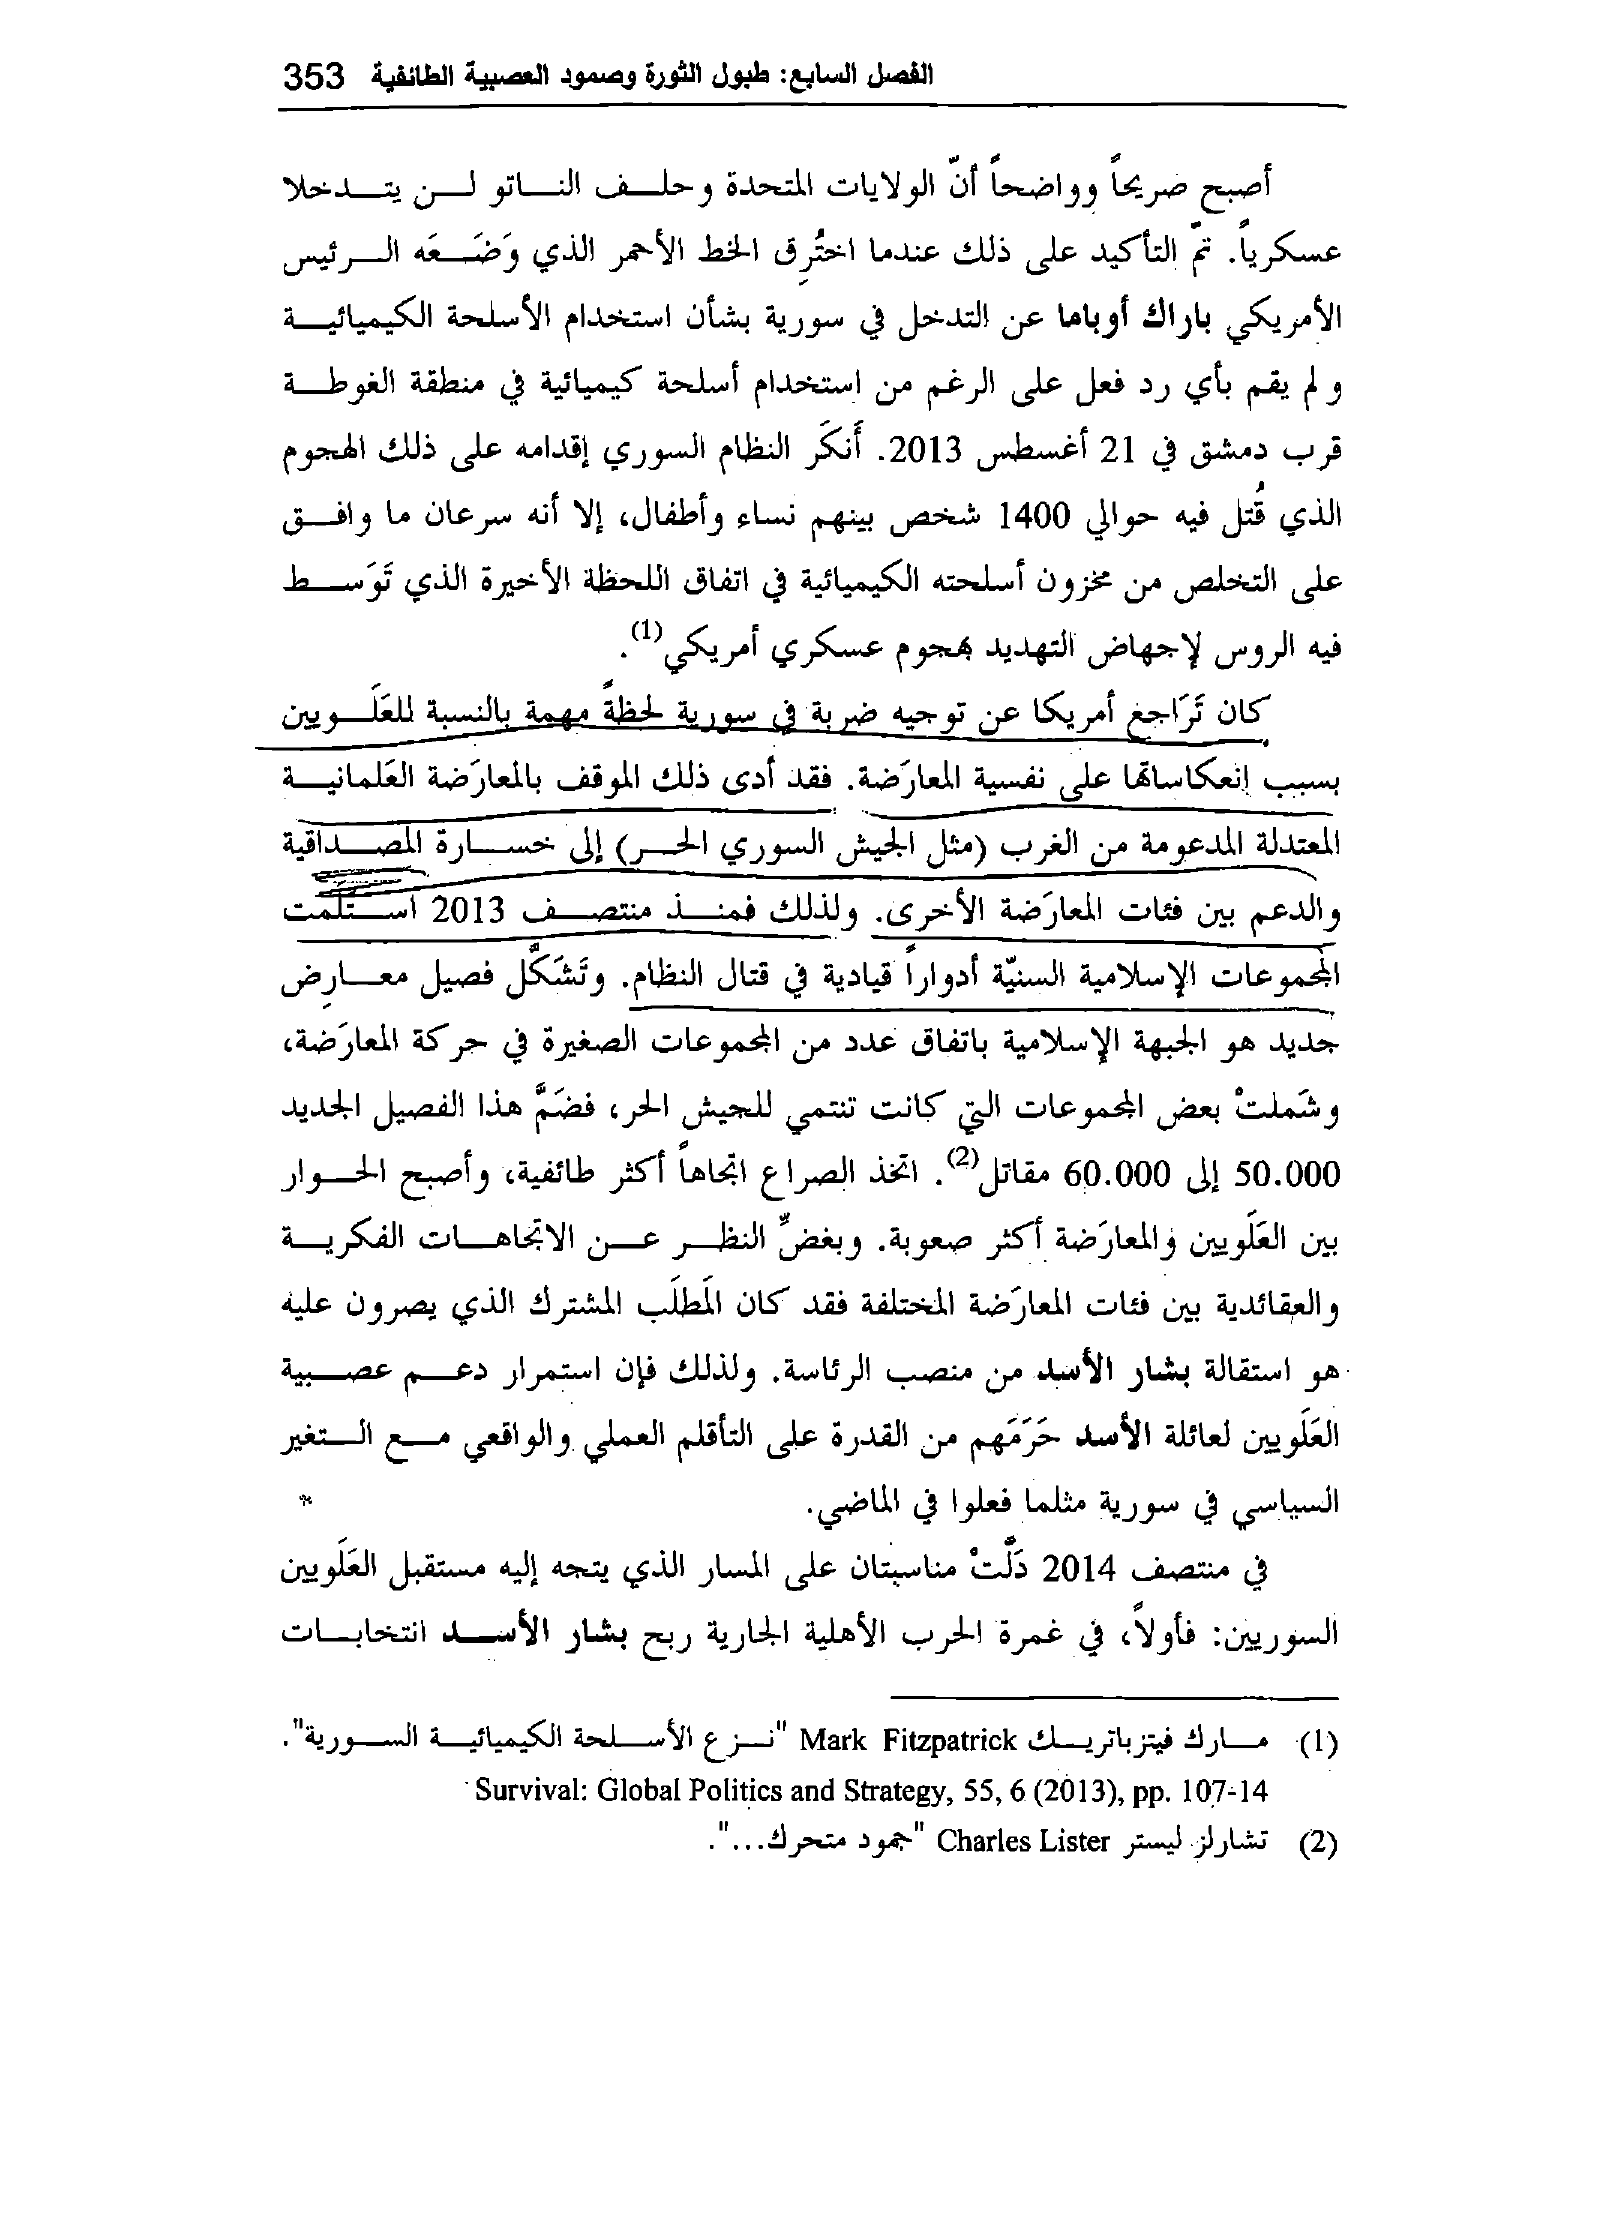 الفصل السابع: طبول الثورة وصمود العصبية الطائفية 353
أصبح صريحاً وواضحاً أنّ الولايات المتحدة وحلف الناتو لن يتدخلا
عسكرياً. تمّ التأكيد على ذلك عندما اختُرِق الخط الأحمر الذي وَضَعَه الرئيس
الأمريكي باراك أوباما عن التدخل في سورية بشأن استخدام الأسلحة الكيميائية
ولم يقم بأي رد فعل على الرغم من استخدام أسلحة كيميائية في منطقة الغوطة
قرب دمشق في 21 أغسطس 2013. أَنكَر النظام السوري إقدامه على ذلك الهجوم
الذي قُتل فيه حوالي 1400 شخص بينهم نساء وأطفال، إلا أنه سرعان ما وافق
على التخلص من مخزون أسلحته الكيميائية في اتفاق اللحظة الأخيرة الذي تَوَسط
فيه الروس لإجهاض التهديد بهجوم عسكري أمريكي(1).
كان تَرَاجع أمريكا عن توجيه ضربة في سورية لحظةً مهمة بالنسبة للعَلَويين
بسبب انعكاساتها على نفسية المعارَضة. فقد أدى ذلك الموقف بالمعارَضة العَلمانية
المعتدلة المدعومة من الغرب (مثل الجيش السوري الحر) إلى خسارة المصداقية
والدعم بين فئات المعارَضة الأخرى. ولذلك فمنذ منتصف 2013 استلمت
المجموعات الإسلامية السنيّة أدواراً قيادية في قتال النظام. وتَشَكَّل فصيل معارِض
جديد هو الجبهة الإسلامية باتفاق عدد من المجموعات الصغيرة في حركة المعارَضة،
وشَملتْ بعض المجموعات التي كانت تنتمي للجيش الحر، فضَمَّ هذا الفصيل الجديد
50.000 إلى 60.000 مقاتل(2). اتخذ الصراع اتجاهاً أكثر طائفية، وأصبح الحوار
بين العَلَويين والمعارَضة أكثر صعوبة. وبغضِّ النظر عن الاتجاهات الفكرية
والعقائدية بين فئات المعارَضة المختلفة فقد كان المَطلَب المشترك الذي يصرون عليه
هو استقالة بشار الأسد من منصب الرئاسة. ولذلك فإن استمرار دعم عصبية
العَلَويين لعائلة الأسد حَرَمَهم من القدرة على التأقلم العملي والواقعي مع التغير
السياسي في سورية مثلما فعلوا في الماضي.
في منتصف 2014 دَلَّتْ مناسبتان على المسار الذي يتجه إليه مستقبل العَلَويين
السوريين: فأولاً، في غمرة الحرب الأهلية الجارية ربح بشار الأسد انتخابات
(1) مارك فيتزباتريك Mark Fitzpatrick "نزع الأسلحة الكيميائية السورية".
Survival: Global Politics and Strategy, 55, 6 (2013), pp. 107-14
(2) تشارلز ليستر Charles Lister "جمود متحرك...".